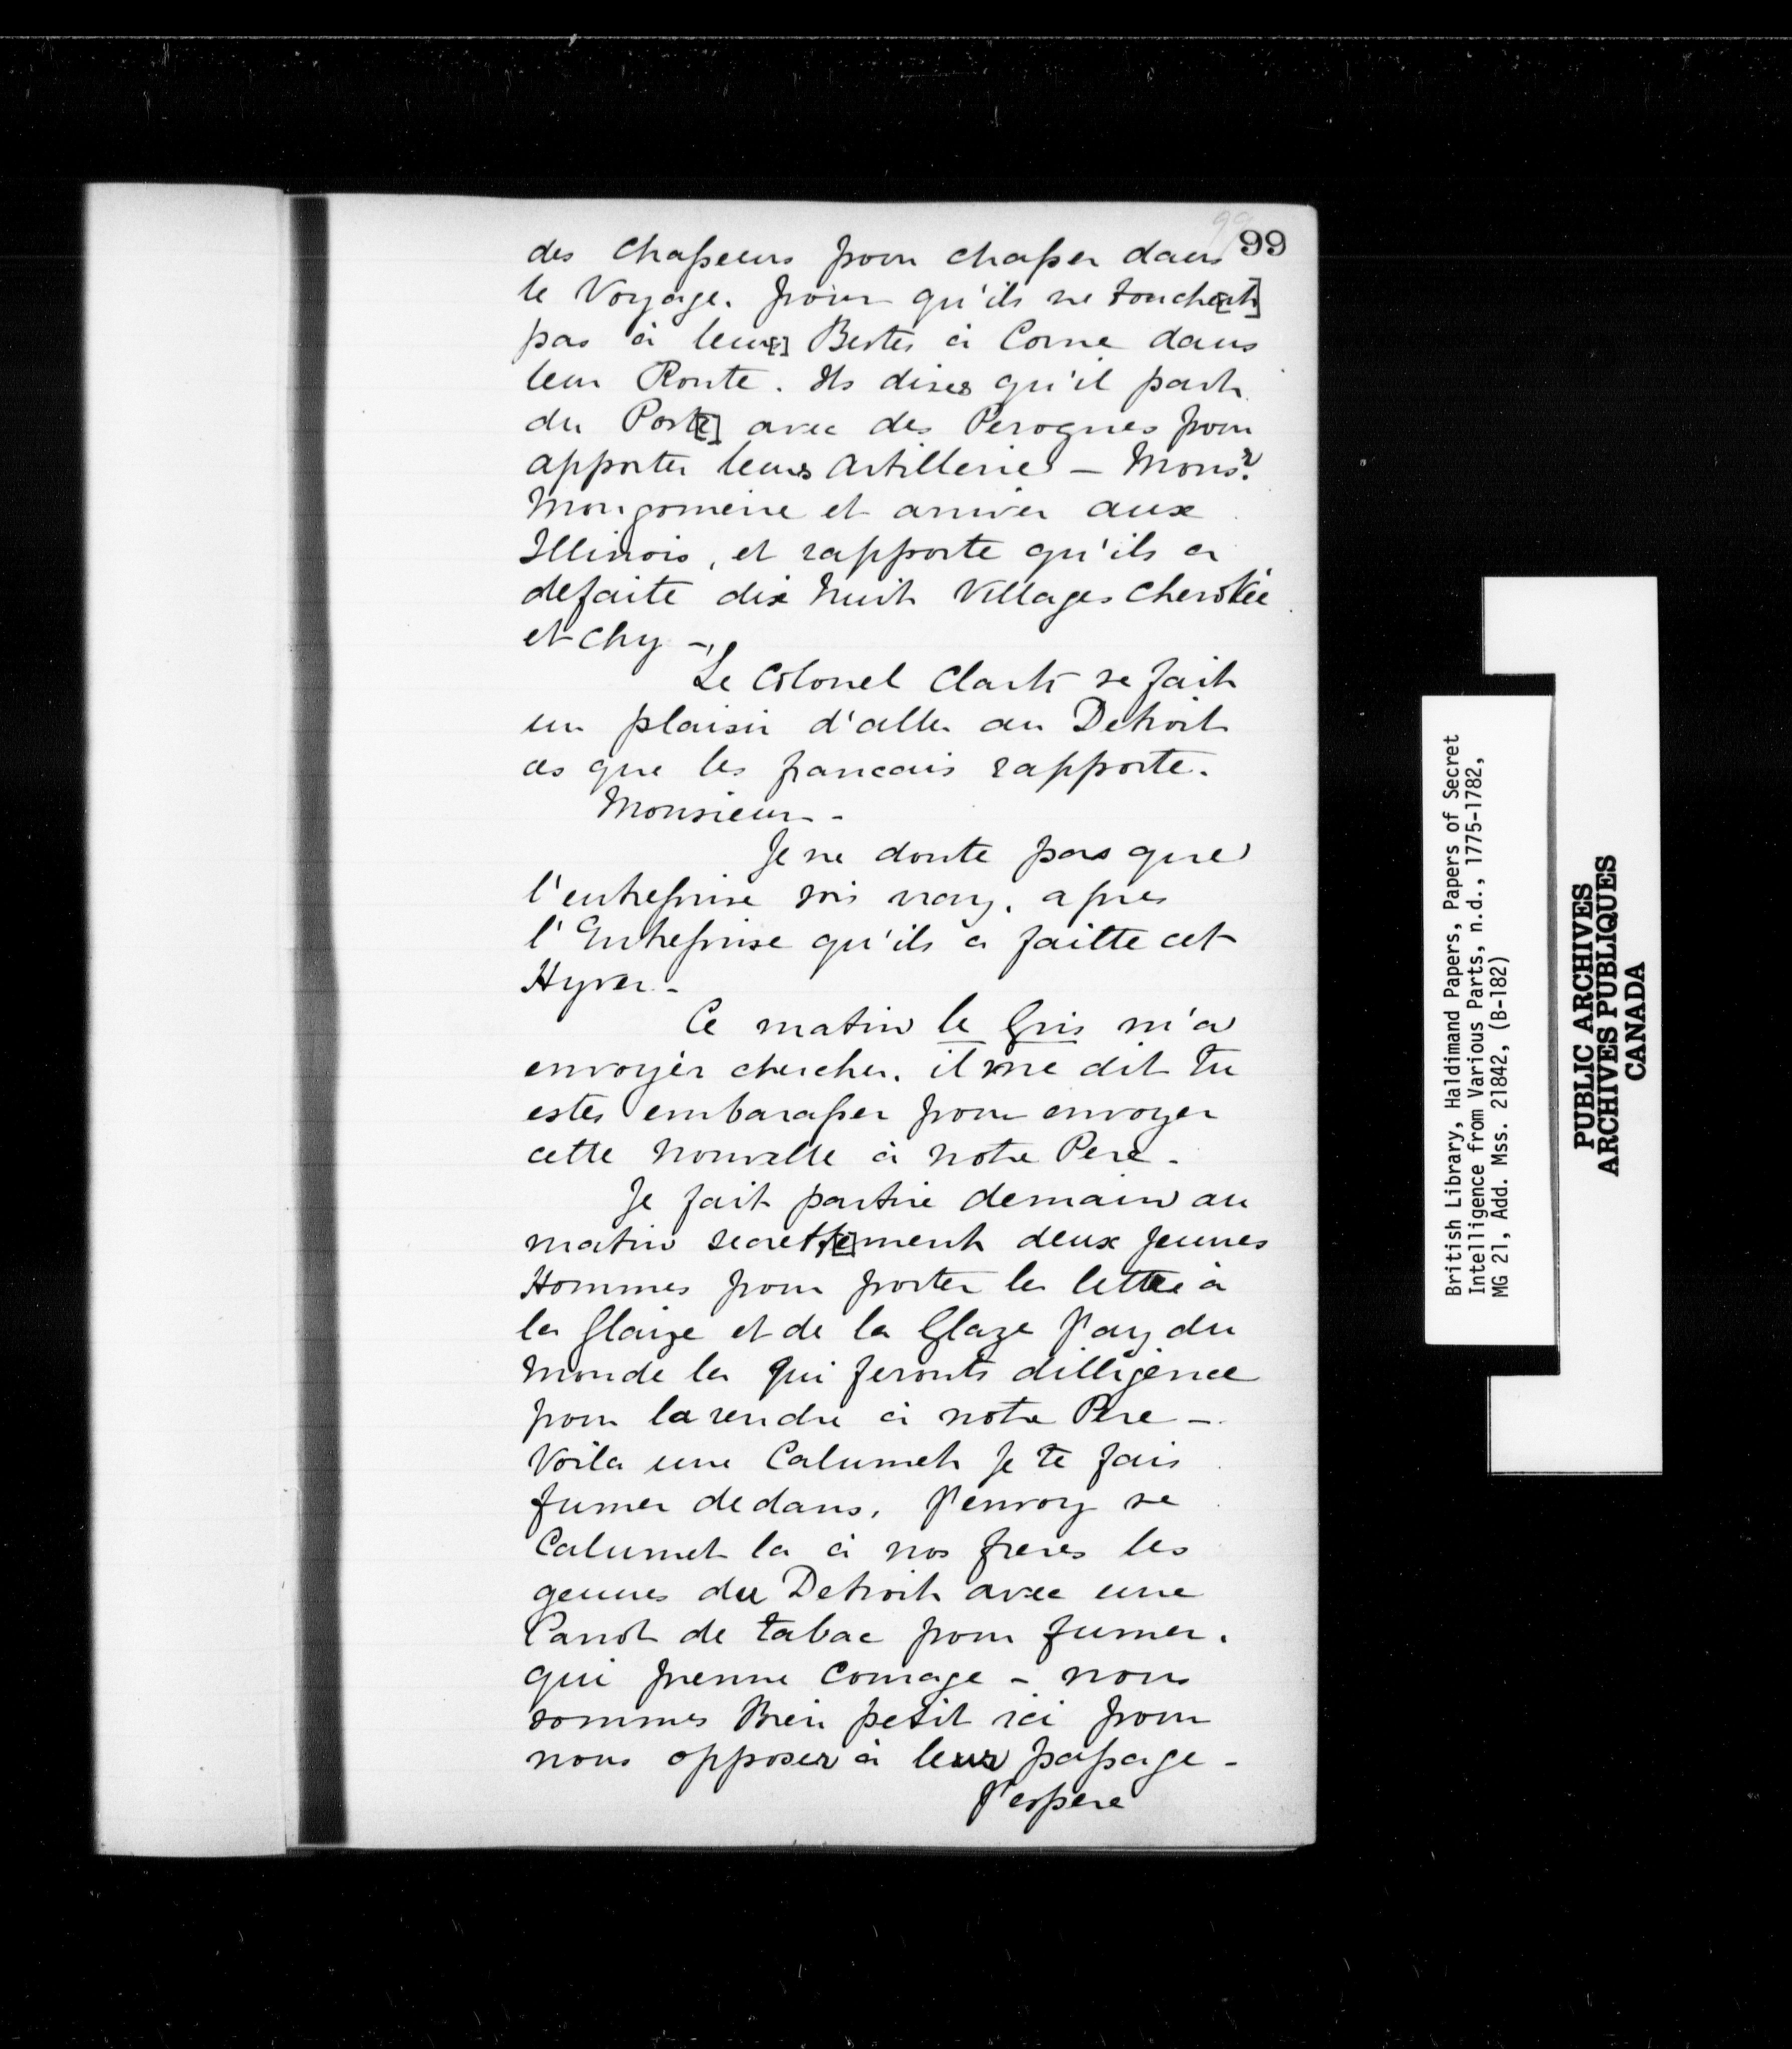 99
99
des Chasseurs pour chasser dans
le Voyage. pour qu'ils ne touche[nt]
pas à leur[s] Bestes à Corne dans
leur Route. Ils dises qu'il part
du Post[e] avec des Perogues pour
apporter leurs Artillerie - Mons.r
Mongomerie et arriver aux
Illinois, et rapporte qu'ils a
defaite dix huit Villages Cherokée
et Chy -
Le Colonel Clark se fait
un plaisir d'aller au Detroit
as que les francais rapporte.
Monsieur -
Je ne doute pas que
l'entreprise sois vray. apres
l'Entreprise qu'ils a faitte cet
Hyver -
Ce matin le Gris m'a
envoyér chercher. il me dit tu
estes embarasser pour envoyer
cette nouvelle à notre Pere -
Je fait partire demain au
matin secrett[e]ment deux Jeunes
Hommes pour porter la lettre à
la Glaize et de la Glaze J'ay du
Monde la qui feronts dilligence
pour la rendre à notre Pere -
Voila une Calumet Je te fais
fumer dedans, J'envoy se
Calumet la à nos freres les
gennes du Detroit avec une
Carrot de tabac pour fumer.
qui prenne Courage - nous
sommes Bien petit ici pour
nous opposer à leur passage -
J'espere
British Library, Haldimand Papers, Papers of Secret
Intelligence from Various Parts, n.d., 1775-1782,
MG 21, Add. Mss. 21842, (B-182)
PUBLIC ARCHIVES
ARCHIVES PUBLIQUES
CANADA